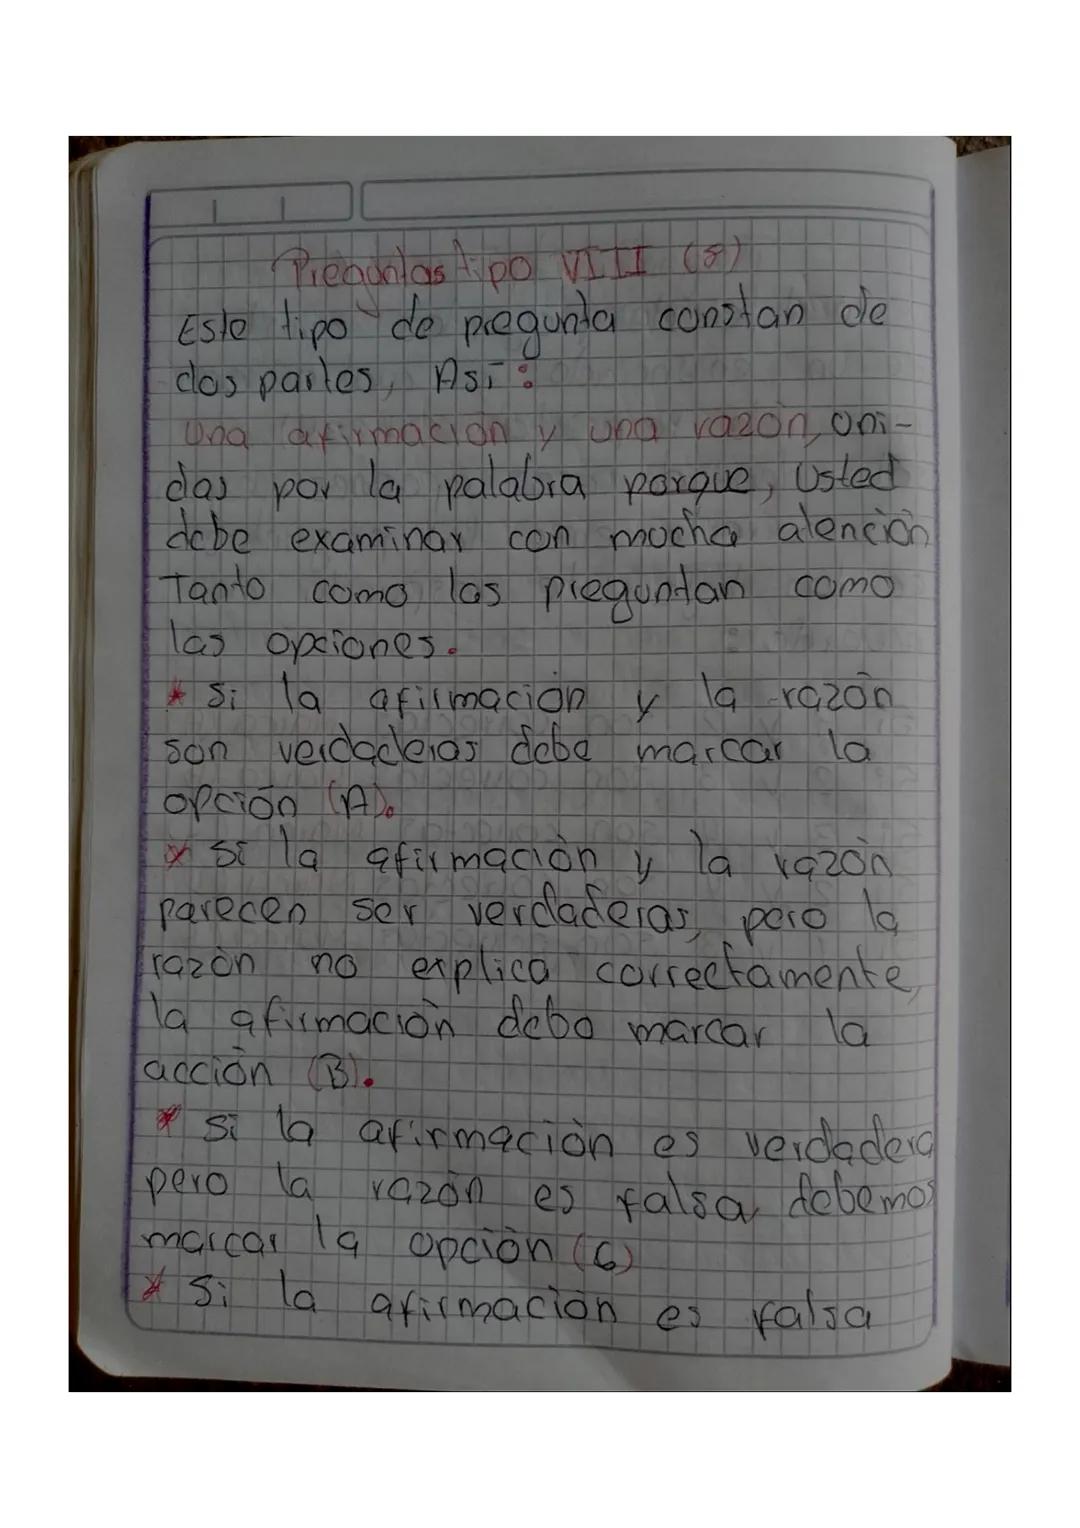 Preguntas tipo VIII (8)
Este tipo de pregunta constan de
dos partes, Asi:
Una afirmación y una razón, uni-
das por la palabra porque, Usted
debe examinar con mucha atención
Tanto como las preguntan como
las opciones.
* Si la afirmación y la razón
son verdaderas debe marcar la
opción (A).
* Si la afirmación y la razón
parecen ser verdaderas, pero la
razón no explica correctamente,
la afirmación debo marcar la
acción (B).
* Si la afirmación es verdadera
pero la razón es falsa, debemos
marcar la opción (C)
* Si la afirmación es falsa